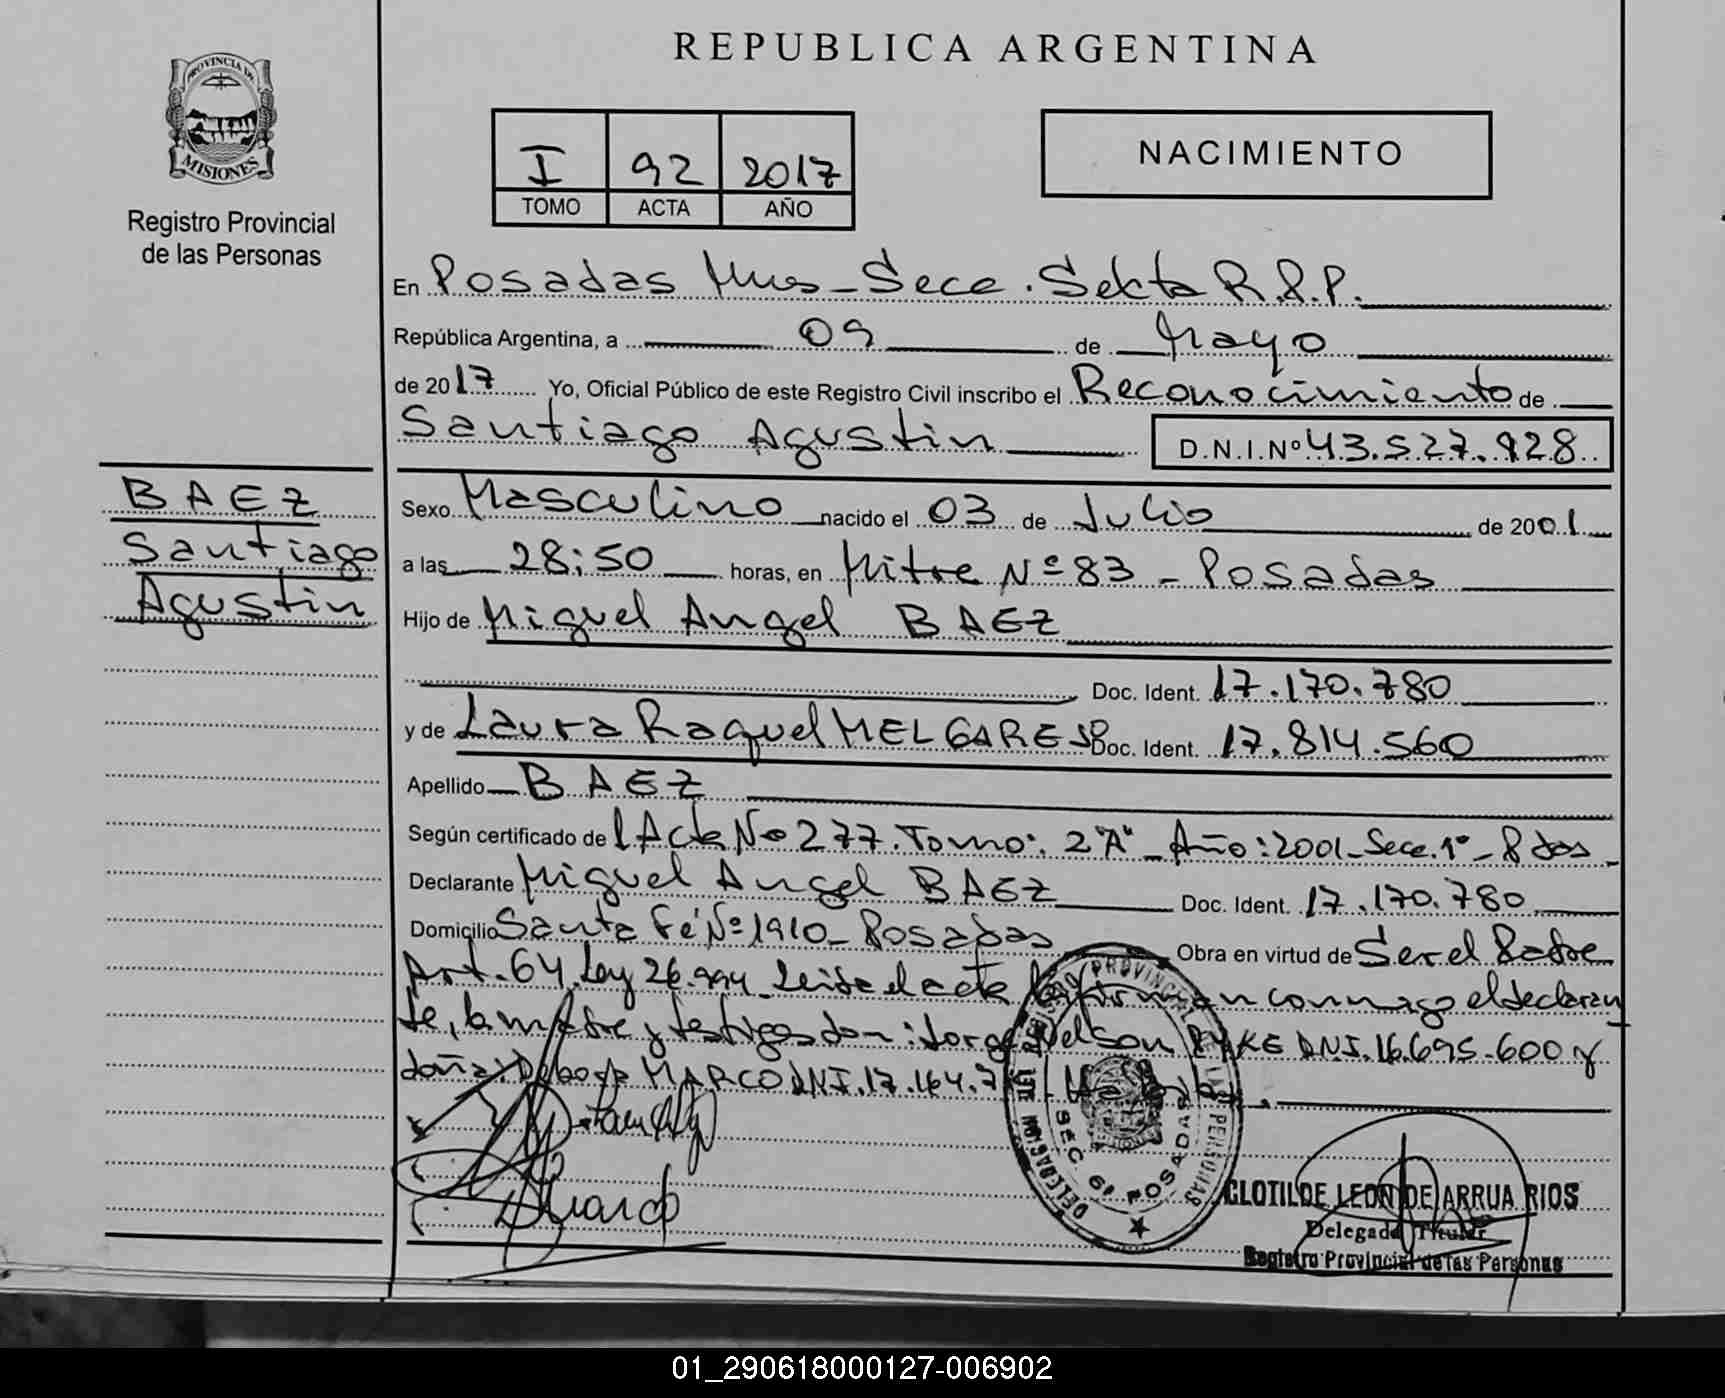 REPUBLICA ARGENTINA
PROVINCIA DE
MISIONES
Registro Provincial
de las Personas
I 92 2017
TOMO ACTA AÑO
NACIMIENTO
En Posadas Mnes - Secc. Sexta R.P.P.
República Argentina, a 09 de Mayo
de 2017 Yo, Oficial Público de este Registro Civil inscribo el Reconocimiento de
Santiago Agustin D.N.I.Nº 43.527.928
BAEZ
Santiago
Agustin
Sexo Masculino nacido el 03 de Julio de 2001
a las 28:50 horas, en Mitre Nº 83 - Posadas
Hijo de Miguel Angel BAEZ
Doc. Ident. 17.170.780
y de Laura Raquel MELGAREJO Doc. Ident. 17.814.560
Apellido BAEZ
Según certificado de l Acta Nº 277. Tomo: 2"A" - Año: 2001 - Secc. 1º - Pdas -
Declarante Miguel Angel BAEZ Doc. Ident. 17.170.780
Domicilio Santa Fé Nº 1910 - Posadas Obra en virtud de Ser el Padre
Art. 64. Ley 26.994 Leida el acta la firman conmigo el declaran
te, la madre y testigos don: Jorge Nelson DNI. 16.695.600 y
doña: Debora MARCO DNI. 17.164.7
REGISTRO PROVINCIAL DE LAS PERSONAS
SEC. 6ª POSADAS
CLOTILDE LEON DE ARRUA RIOS
Delegada Titular
Registro Provincial de las Personas
01_290618000127-006902